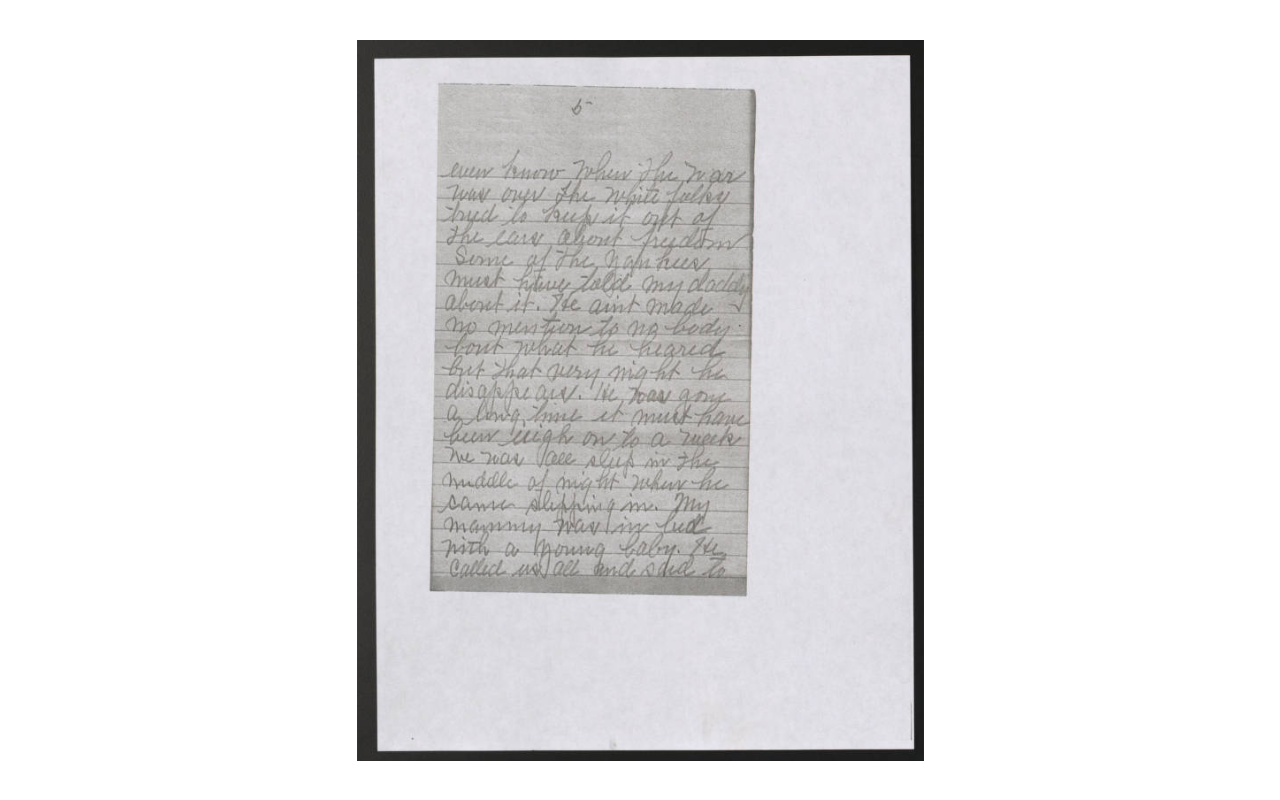 5
even know when the war
was over the white folks
tried to keep it out of
the ears about freedom
Some of the Yankees
must have told my daddy
about it. He aint made
no mention to no body
bout what he heared
but that very night he
disappears. He was gone
a long time it must have
been nigh on to a week
We was all slep in the
middle of night when he
came slipping in. My
mammy was in bed
with a young baby. He
called us all and said to